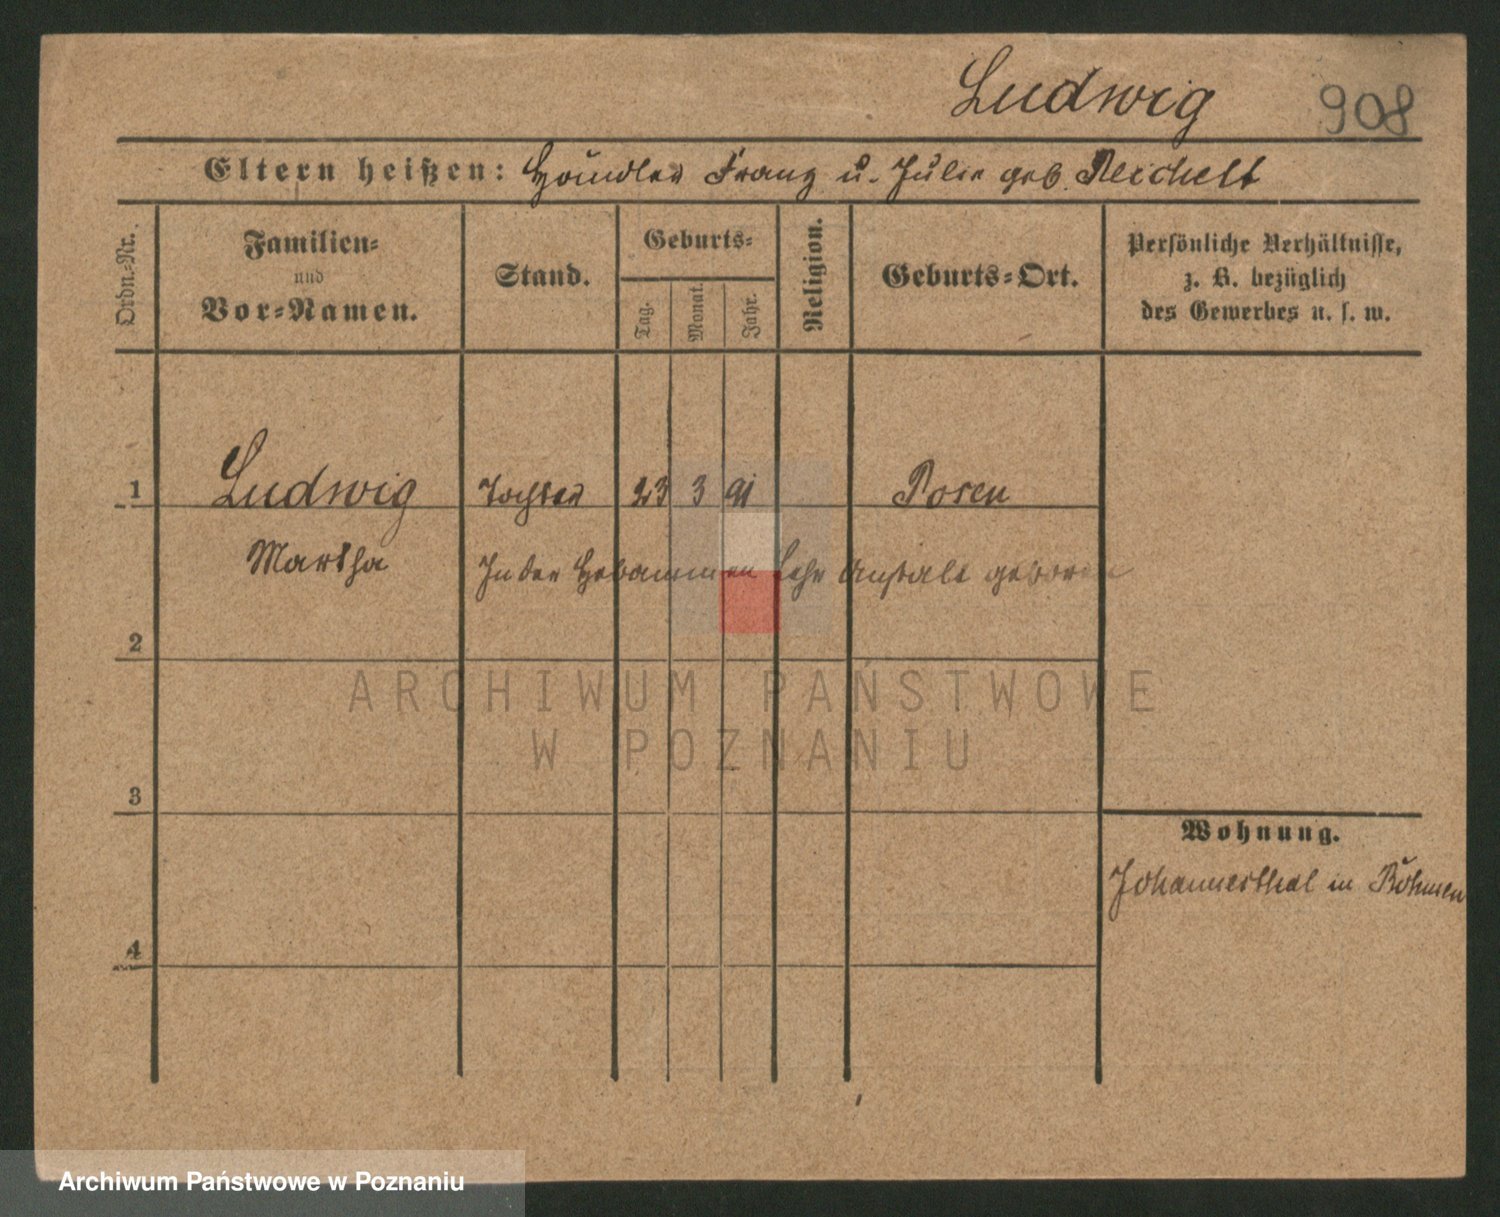 Ludwig 908
Eltern heißen: Händler Franz u. Julie geb. Reichelt
Ordn.-Nr.
Familien-
und
Vor-Namen.
Stand.
Geburts-
Tag.
Monat.
Jahr.
Religion.
Geburts-Ort.
Persönliche Verhältnisse,
z. B. bezüglich
des Gewerbes u. s. w.
1 Ludwig Tochter 23 3 91 Posen
Martha In der Hebammen Lehr Anstalt geboren
2
ARCHIWUM PAŃSTWOWE
W POZNANIU
3
Wohnung.
Johannesthal in Böhmen
4
Archiwum Państwowe w Poznaniu